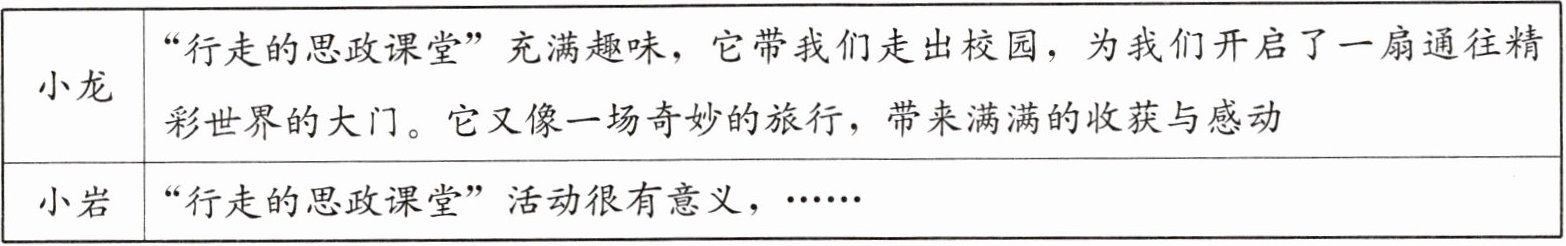 小龙
“行走的思政课堂”充满趣味，它带我们走出校园，为我们开启了一扇通往精
彩世界的大门。它又像一场奇妙的旅行，带来满满的收获与感动
小岩
“行走的思政课堂”活动很有意义，……